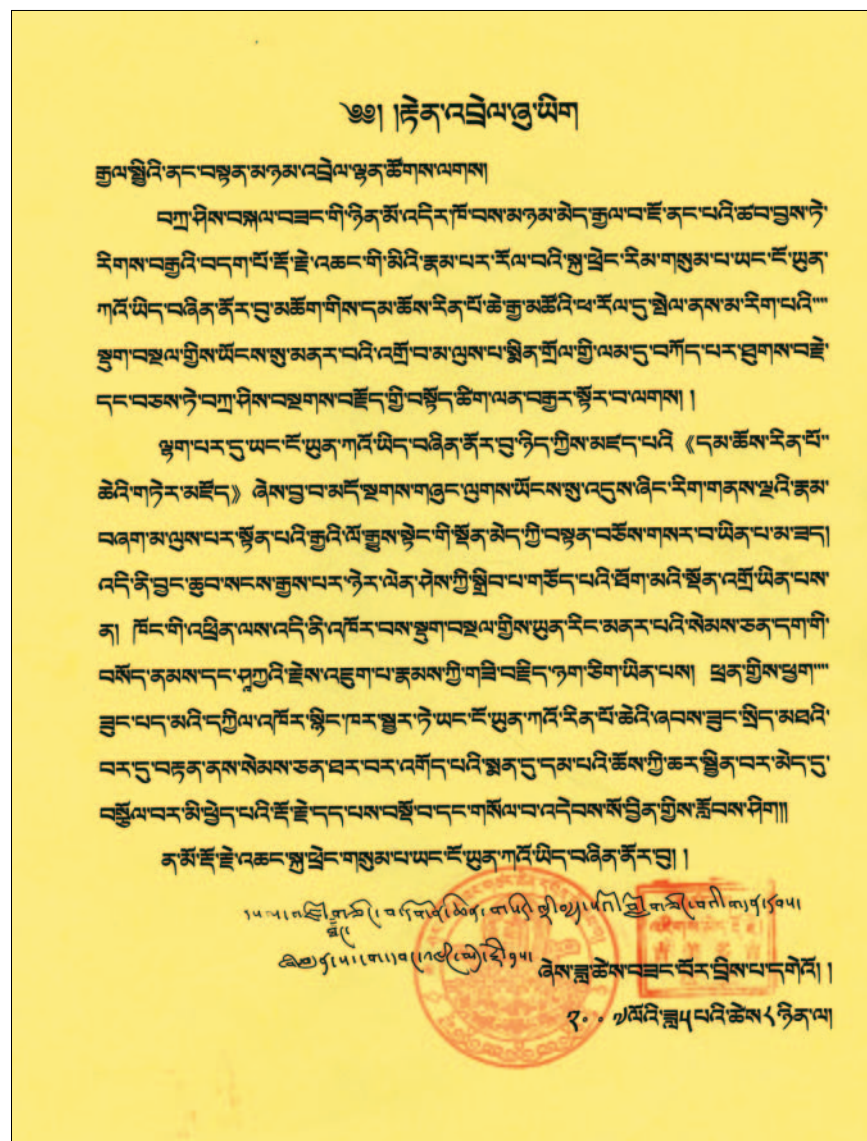 ༄༅། །རྟེན་འབྲེལ་ཞུ་ཡིག
རྒྱལ་སྤྱིའི་ནང་བསྟན་མ་ཉམ་འབྲེལ་ལྷན་ཚོགས་ལགས།
བཀྲ་ཤིས་བསྐལ་བཟང་གི་ཉིན་མོ་འདིར་ཁོ་བས་མ་ཉམ་མེད་རྒྱལ་བ་ཇོ་ནང་པའི་ཚབ་བྱས་ཏེ་
རིགས་བརྒྱའི་བདག་པོ་རྡོ་རྗེ་འཆང་གི་མིའི་རྣམ་པར་རོལ་བའི་སྐུ་ཕྲེང་རིམ་གསུམ་པ་ཡང་ངོ་ཡུན་
ཀའོ་ཡིད་བཞིན་ནོར་བུ་མཆོག་གིས་དམ་ཆོས་རིན་པོ་ཆེ་རྒྱ་མཚོའི་ཕ་རོལ་ཏུ་སྤེལ་ནས་མ་རིག་པའི་""
སྡུག་བསྔལ་གྱིས་ཡོངས་སུ་མནར་བའི་འགྲོ་བ་མ་ལུས་པ་སྨིན་གྲོལ་གྱི་ལམ་དུ་བཀོད་པར་ཐུགས་བརྩེ་
དང་བཅས་ཏེ་བཀྲ་ཤིས་བསྔགས་བརྗོད་ཀྱི་བསྟོད་ཚིག་ལན་བརྒྱར་སྟོར་བ་ལགས། །
ལྷག་པར་དུ་ཡང་ངོ་ཡུན་ཀའོ་ཡིད་བཞིན་ནོར་བུ་ཉིད་ཀྱིས་མཛད་པའི 《དམ་ཆོས་རིན་པོ"
ཆེའི་གཏེར་མཛོད》 ཞེས་བྱ་བ་མདོ་སྔགས་གཞུང་ལུགས་ཡོངས་སུ་འདུས་ཤིང་རིག་གནས་ལྔའི་རྣམ་
བཞག་མ་ལུས་པར་སྟོན་པའི་རྒྱའི་ལོ་རྒྱུས་སྟེང་གི་སྔོན་མེད་ཀྱི་བསྟན་བཅོས་གསར་བ་ཡིན་པ་མ་ཟད།
འདི་ནི་བྱང་ཆུབ་སངས་རྒྱས་པར་ཉེར་ལེན་ཤེས་ཀྱི་སྒྲིབ་པ་གཅོད་པའི་ཐོག་མའི་སྔོན་འགྲོ་ཡིན་པས་
ན། ཁོང་གི་འཕྲིན་ལས་འདི་ནི་འཁོར་བས་སྡུག་བསྔལ་གྱིས་ཡུན་རིང་མནར་པའི་སེམས་ཅན་དག་གི་
བསོད་ནམས་དང་ཤཱཀྱའི་རྗེས་འཇུག་པ་རྣམས་ཀྱི་གཟི་བརྗིད་ཉག་ཅིག་ཡིན་པས། ཕྲན་གྱིས་ཕྱག""
ཟུང་པད་མའི་དཀྱིལ་འཁོར་སྙིང་ཁར་སྦྱར་ཏེ་ཡང་ངོ་ཡུན་ཀའོ་རིན་པོ་ཆེའི་ཞབས་ཟུང་སྲིད་མཐའི་
བར་དུ་བརྟན་ནས་སེམས་ཅན་ཐར་བར་འགོད་པའི་སྨན་དུ་དམ་པའི་ཆོས་ཀྱི་ཆར་སྦྱིན་བར་མེད་དུ་
བསྩོལ་བར་མི་ཕྱེད་པའི་རྡོ་རྗེ་དད་པས་བསྔོ་བ་དང་གསོལ་བ་འདེབས་སོ་བྱིན་གྱིས་རློབས་ཤིག།
ན་མོ་རྡོ་རྗེ་འཆང་སྐུ་ཕྲེང་གསུམ་པ་ཡང་ངོ་ཡུན་ཀའོ་ཡིད་བཞིན་ནོར་བུ། །
ཞེས་ཟླ་ཚེས་བཟང་པོར་བྲིས་པ་དགེའོ། །
༢༠༠༧ལོའི་ཟླ༥པའི་ཚེས༨ཉིན་ལ།